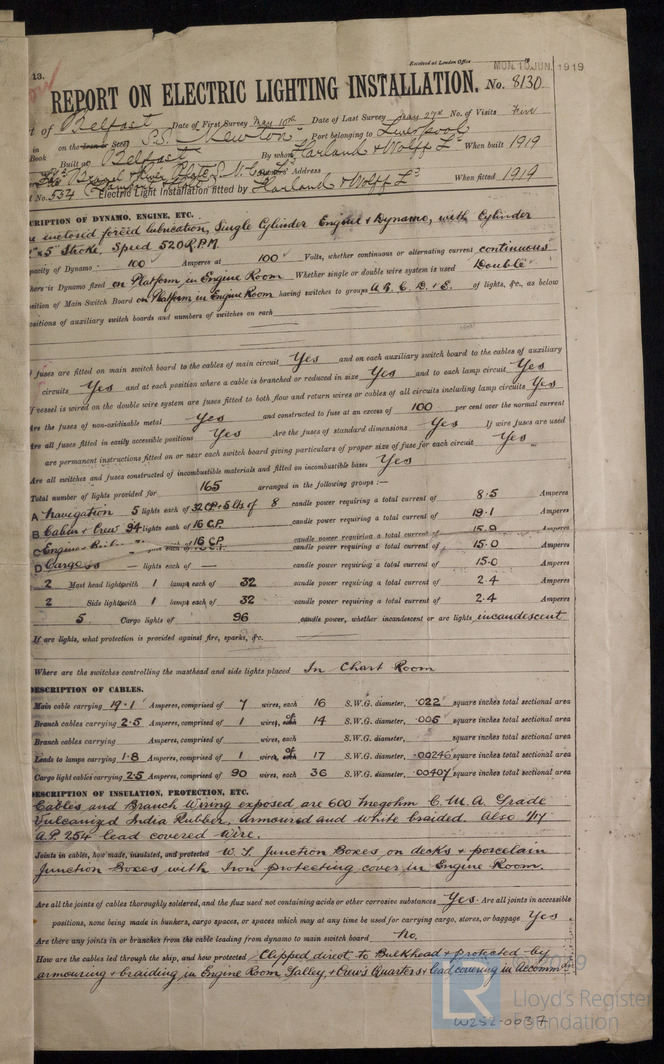 13.
Received at London Office
MON. 16 JUN. 1919
REPORT ON ELECTRIC LIGHTING INSTALLATION. No. 8130
t of Belfast Date of First Survey May 10th Date of Last Survey May 27th No. of Visits Five
in on the Iron or Steel S.S. Newton Port belonging to Liverpool
Book Built at Belfast By whom Harland & Wolff Ld When built 1919
Owners' Address
t No. 534 Electric Light Installation fitted by Harland & Wolff Ld When fitted 1919
CRIPTION OF DYNAMO, ENGINE, ETC.
enclosed forced lubrication, Single Cylinder Engine & Dynamo, with Cylinder
" x 5" Stroke. Speed 520 R.P.M.
pacity of Dynamo 100 Amperes at 100 Volts, whether continuous or alternating current continuous
here is Dynamo fixed on Platform in Engine Room Whether single or double wire system is used Double
osition of Main Switch Board on Platform in Engine Room having switches to groups A B. C. D. & E. of lights, &c., as below
ositions of auxiliary switch boards and numbers of switches on each
f fuses are fitted on main switch board to the cables of main circuit Yes and on each auxiliary switch board to the cables of auxiliary
circuits Yes and at each position where a cable is branched or reduced in size Yes and to each lamp circuit Yes
If vessel is wired on the double wire system are fuses fitted to both flow and return wires or cables of all circuits including lamp circuits Yes
Are the fuses of non-oxidizable metal Yes and constructed to fuse at an excess of 100 per cent over the normal current
Are all fuses fitted in easily accessible positions Yes Are the fuses of standard dimensions Yes If wire fuses are used
are permanent instructions fitted on or near each switch board giving particulars of proper size of fuse for each circuit Yes
Are all switches and fuses constructed of incombustible materials and fitted on incombustible bases Yes
Total number of lights provided for 165 arranged in the following groups :—
A Navigation 5 lights each of 32 CP & 5 lts of 8 candle power requiring a total current of 8.5 Amperes
B Cabin & Crew 94 lights each of 16 C.P. candle power requiring a total current of 19.1 Amperes
C Engine 16 C.P. candle power requiring a total current of 15.0 Amperes
D Cargo — lights each of — candle power requiring a total current of 15.0 Amperes
2 Mast head light with 1 lamps each of 32 candle power requiring a total current of 2.4 Amperes
2 Side light with 1 lamps each of 32 candle power requiring a total current of 2.4 Amperes
5 Cargo lights of 96 candle power, whether incandescent or arc lights incandescent
If arc lights, what protection is provided against fire, sparks, &c.
Where are the switches controlling the masthead and side lights placed In Chart Room
DESCRIPTION OF CABLES.
Main cable carrying 19.1 Amperes, comprised of 7 wires, each 16 S.W.G. diameter, .022 square inches total sectional area
Branch cables carrying 2.5 Amperes, comprised of 1 wires, of 14 S.W.G. diameter, .005 square inches total sectional area
Branch cables carrying Amperes, comprised of wires, each S.W.G. diameter, square inches total sectional area
Leads to lamps carrying 1.8 Amperes, comprised of 1 wires, of 17 S.W.G. diameter, .00246 square inches total sectional area
Cargo light cables carrying 2.5 Amperes, comprised of 90 wires, each 36 S.W.G. diameter, .00407 square inches total sectional area
DESCRIPTION OF INSULATION, PROTECTION, ETC.
Cables and Branch Wiring exposed are 600 megohm C.M.A. Grade
Vulcanized India Rubber, Armoured and white braided. Also
A.P. 254 lead covered wire.
Joints in cables, how made, insulated, and protected W.T. Junction Boxes on decks & porcelain
Junction Boxes with Iron protecting cover in Engine Room.
Are all the joints of cables thoroughly soldered, and the flux used not containing acids or other corrosive substances Yes. Are all joints in accessible
positions, none being made in bunkers, cargo spaces, or spaces which may at any time be used for carrying cargo, stores, or baggage Yes
Are there any joints in or branches from the cable leading from dynamo to main switch board No.
How are the cables led through the ship, and how protected Clipped direct to Bulkhead & protected by
armouring & braiding in Engine Room Galley, & Crew's Quarters & lead covering in Accommdn
© 2019
Lloyd's Register
Foundation
W252-0037